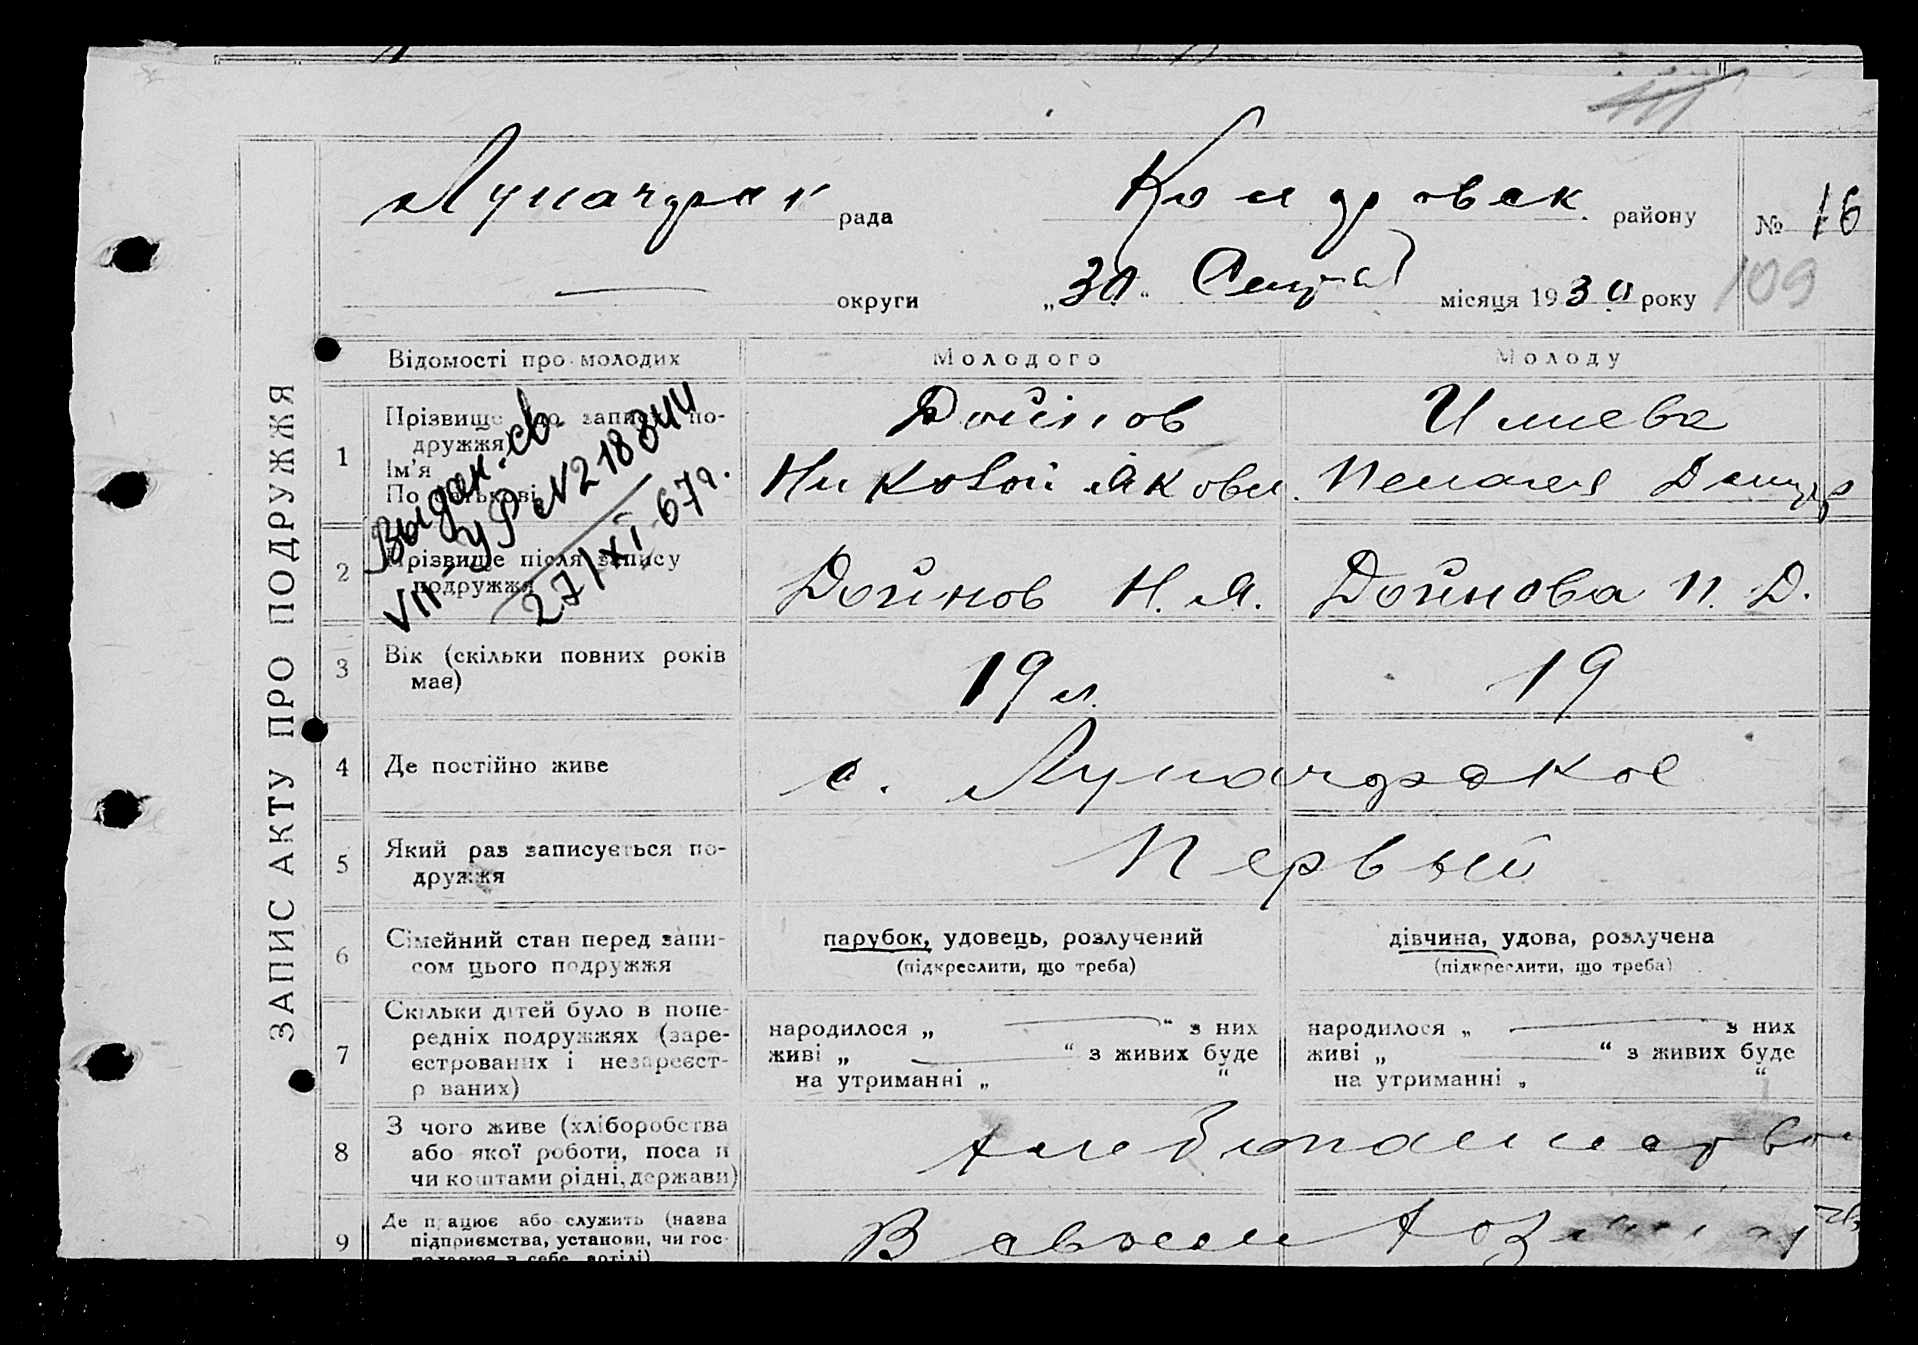 Луначарск рада
Коларовск. району
№ 16
округи
„30“ Сентяб місяця 1930 року
109
ЗАПИС АКТУ ПРО ПОДРУЖЖЯ
Відомості про молодих
Молодого
Молоду
1
Прізвище до запису по-
дружжя
Ім'я
По батькові
Дойнов
Николай Яковл.
Илиева
Пелагея Дмитр
Выдан. св.
VII-УР № 218844
27/XI-67 г.
2
Прізвище після запису
подружжя
Дойнов Н. Я.
Дойнова П. Д.
3
Вік (скільки повних років
має)
19 л.
19
4
Де постійно живе
с. Луначарское
5
Який раз записується по-
дружжя
Первый
6
Сімейний стан перед запи-
сом цього подружжя
парубок, удовець, розлучений
(підкреслити, що треба)
дівчина, удова, розлучена
(підкреслити, що треба)
7
Скільки дітей було в попе-
редніх подружжях (заре-
єстрованих і незареєст-
р ваних)
народилося „ “ з них
живі „ “ з живих буде
на утриманні „ “
народилося „ з них
живі „ “ з живих буде
на утриманні „ “
8
З чого живе (хліборобства
або якої роботи, поса и
чи коштами рідні, держави)
Хлебопашество
9
Де працює або служить (назва
підприємства, установи, чи гос-
В своем